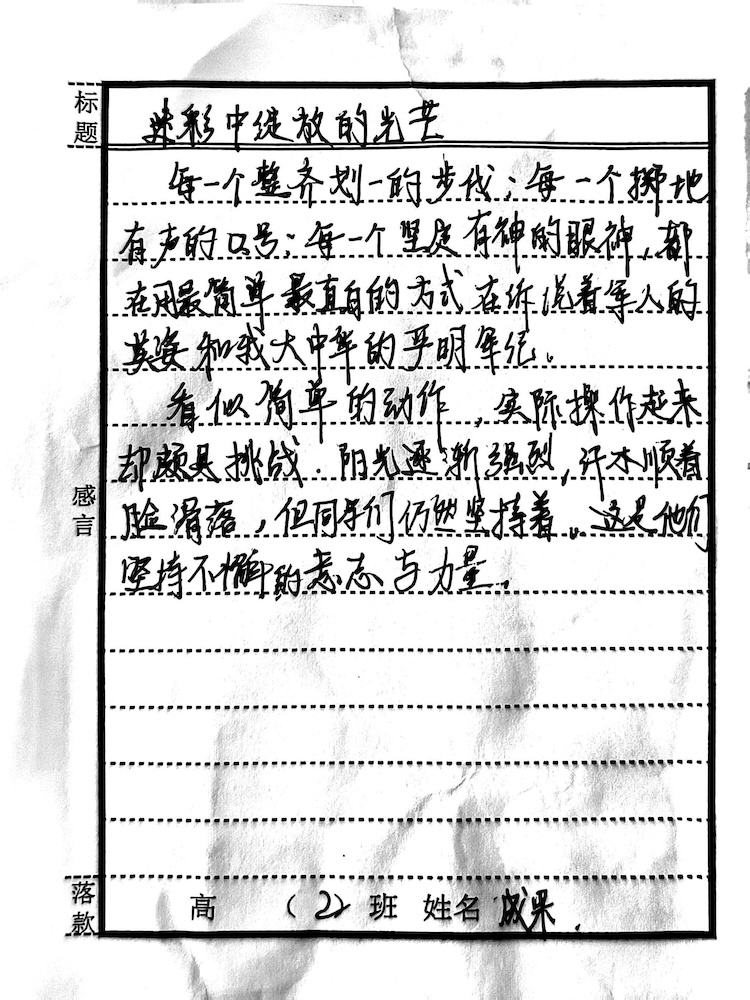 标题
迷彩中绽放的光芒
每一个整齐划一的步伐；每一个掷地
有声的口号；每一个坚定有神的眼神，都
在用最简单最直白的方式在诉说着军人的
英姿和我大中华的严明军纪。
看似简单的动作，实际操作起来
却颇具挑战．阳光逐渐强烈，汗水顺着
脸滑落，但同学们仍然坚持着。这是他们
坚持不懈的意志与力量。
感言
落款
高 （2）班 姓名 成果．